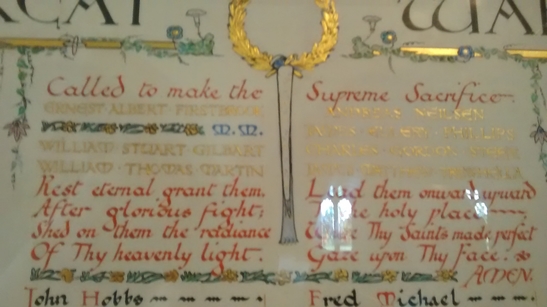 GREAT WAR
Called to make the Supreme Sacrifice
ERNEST ALBERT FIRSTBROOK
NEILSEN
M.M.
PHILLIPS
WILLIAM STUART GILBART
WILLIAM THOMAS MARTIN
Rest eternal grant them,
After glorious fight;
Shed on them the radiance
Of Thy heavenly light.
Lead them onward, upward
the holy place
Where Thy Saints made perfect
Gaze upon Thy Face.
AMEN.
John Hobbs
Fred Michael